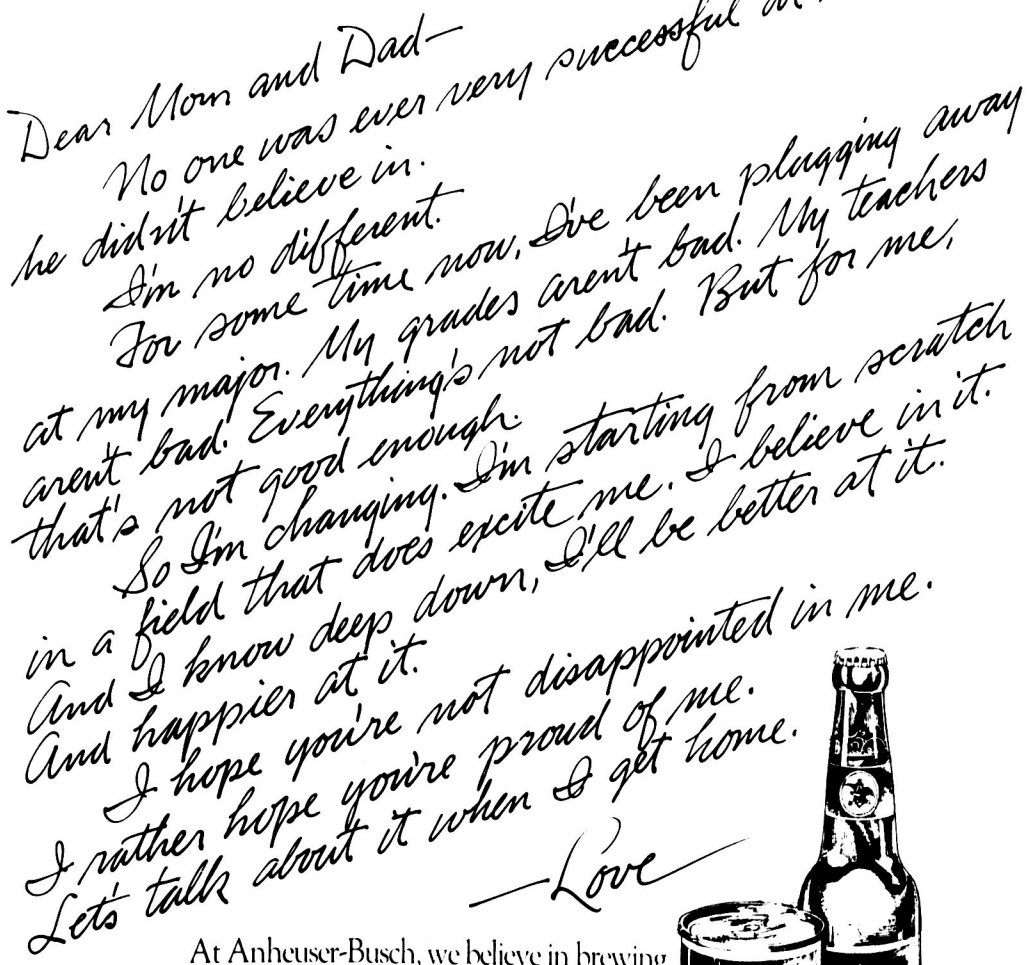 Dear Mom and Dad—
No one was ever very successful at
he didn't believe in.
I'm no different.
For some time now, I've been plugging away
at my major. My grades aren't bad. My teachers
aren't bad. Everything's not bad. But for me,
that's not good enough.
So I'm changing. I'm starting from scratch
in a field that does excite me. I believe in it.
And I know deep down, I'll be better at it.
And happier at it.
I hope you're not disappointed in me.
I rather hope you're proud of me.
Let's talk about it when I get home.
—Love
At Anheuser-Busch, we believe in brewing